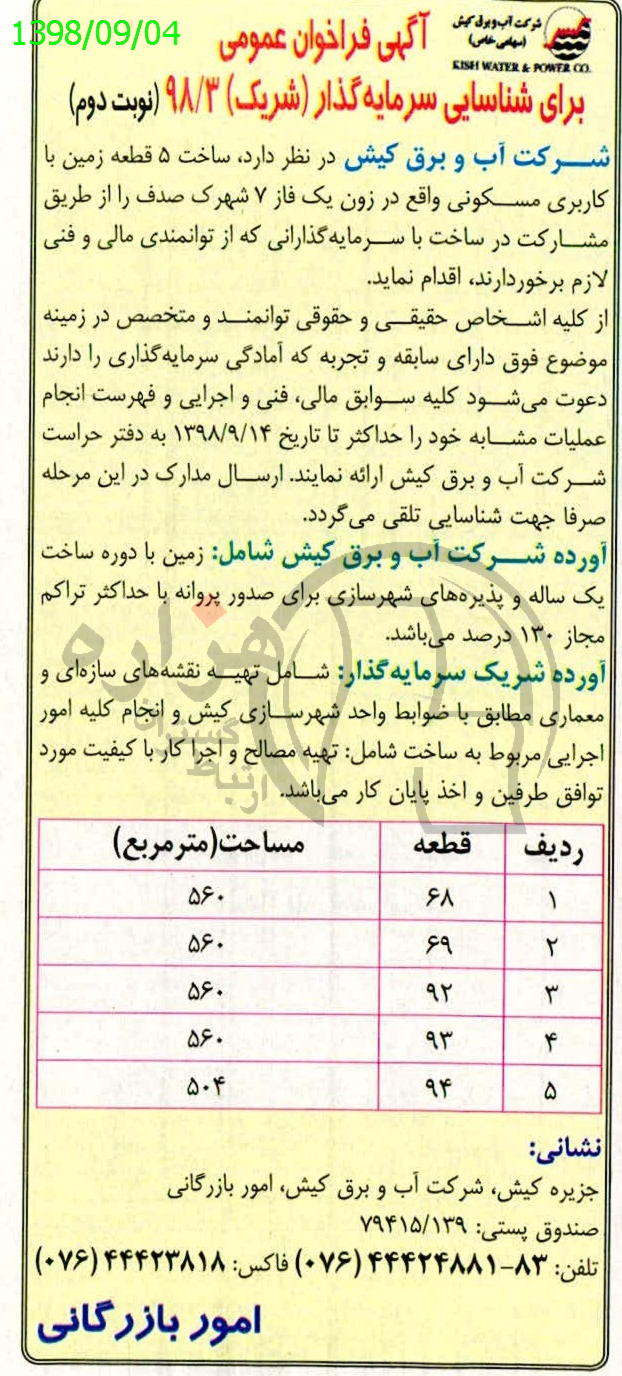 1398/09/04
شرکت آب و برق کیش
(سهامی خاص)
KISH WATER & POWER CO.
آگهی فراخوان عمومی
برای شناسایی سرمایه‌گذار (شریک) ۹۸/۳ (نوبت دوم)
شرکت آب و برق کیش در نظر دارد، ساخت ۵ قطعه زمین با
کاربری مسکونی واقع در زون یک فاز ۷ شهرک صدف را از طریق
مشارکت در ساخت با سرمایه‌گذارانی که از توانمندی مالی و فنی
لازم برخوردارند، اقدام نماید.
از کلیه اشخاص حقیقی و حقوقی توانمند و متخصص در زمینه
موضوع فوق دارای سابقه و تجربه که آمادگی سرمایه‌گذاری را دارند
دعوت می‌شود کلیه سوابق مالی، فنی و اجرایی و فهرست انجام
عملیات مشابه خود را حداکثر تا تاریخ ۱۳۹۸/۹/۱۴ به دفتر حراست
شرکت آب و برق کیش ارائه نمایند. ارسال مدارک در این مرحله
صرفا جهت شناسایی تلقی می‌گردد.
آورده شرکت آب و برق کیش شامل: زمین با دوره ساخت
یک ساله و پذیره‌های شهرسازی برای صدور پروانه با حداکثر تراکم
مجاز ۱۳۰ درصد می‌باشد.
آورده شریک سرمایه‌گذار: شامل تهیه نقشه‌های سازه‌ای و
معماری مطابق با ضوابط واحد شهرسازی کیش و انجام کلیه امور
اجرایی مربوط به ساخت شامل: تهیه مصالح و اجرا کار با کیفیت مورد
توافق طرفین و اخذ پایان کار می‌باشد.
ردیف قطعه مساحت(مترمربع)
۱ ۶۸ ۵۶۰
۲ ۶۹ ۵۶۰
۳ ۹۲ ۵۶۰
۴ ۹۳ ۵۶۰
۵ ۹۴ ۵۰۴
نشانی:
جزیره کیش، شرکت آب و برق کیش، امور بازرگانی
صندوق پستی: ۷۹۴۱۵/۱۳۹
تلفن: ۸۳-۴۴۴۲۴۸۸۱ (۰۷۶) فاکس: ۴۴۴۲۳۸۱۸ (۰۷۶)
امور بازرگانی
هزاره